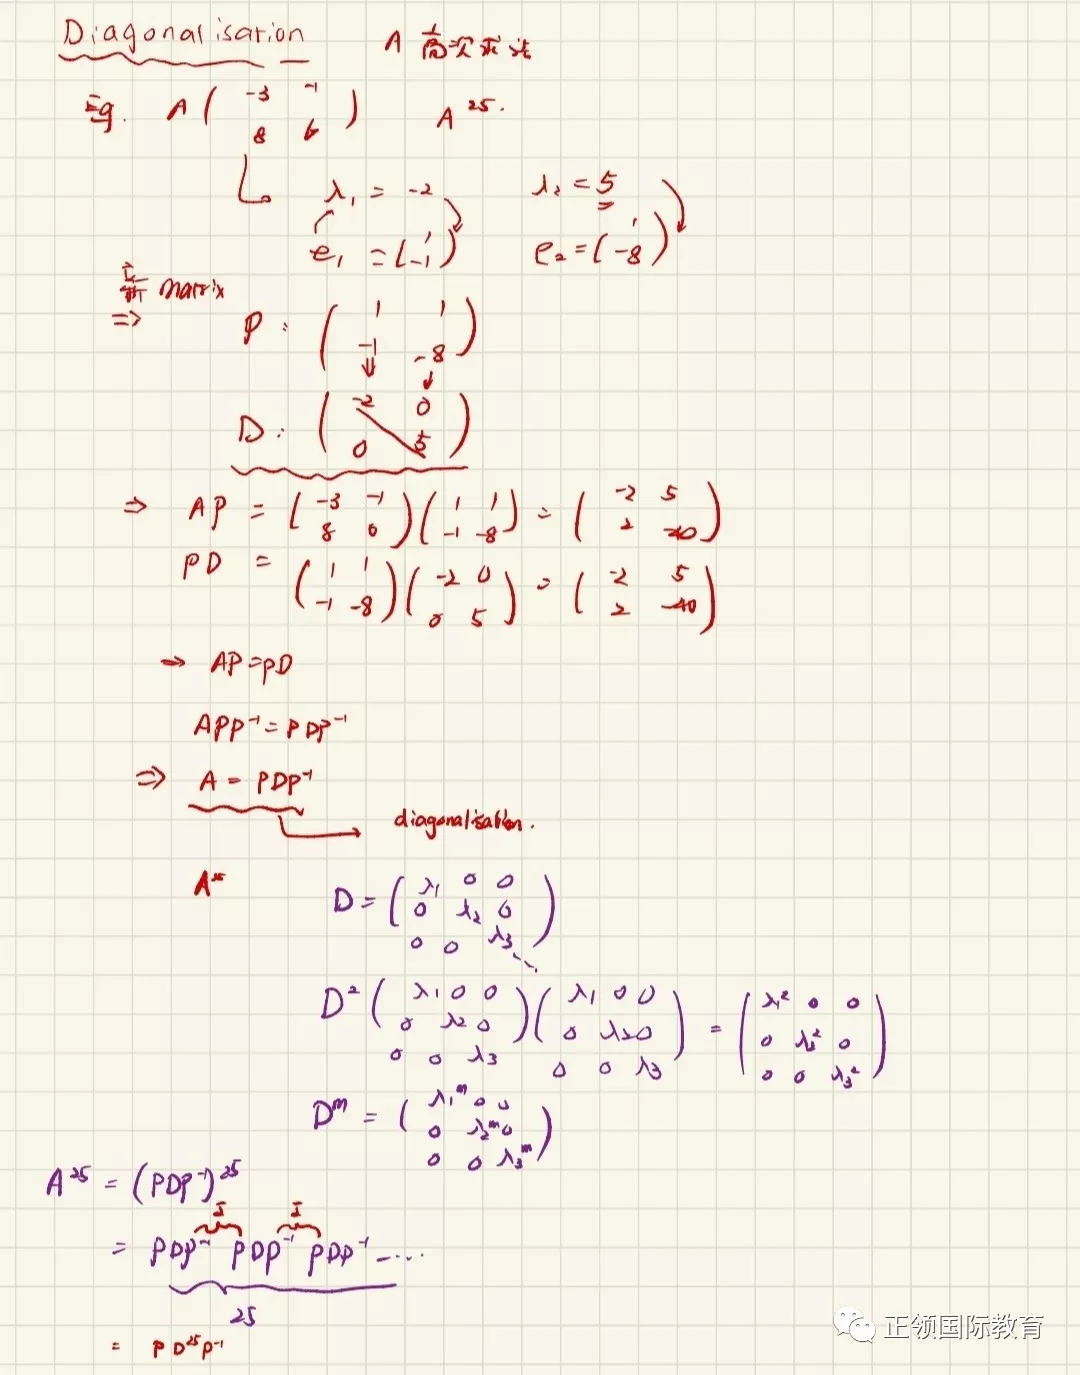 Diagonalisation A 高次求法
Eg. A ( -3 -1 ) A²⁵.
8 6
λ₁ = -2 λ₂ = 5
e₁ = ( 1 ) e₂ = ( 1 )
-1 -8
新 matrix
⇒ P : ( 1 1 )
-1 -8
D : ( -2 0 )
0 5
⇒ AP = ( -3 -1 ) ( 1 1 ) = ( -2 5 )
8 6 -1 -8 2 -40
PD = ( 1 1 ) ( -2 0 ) = ( -2 5 )
-1 -8 0 5 2 -40
→ AP = PD
APP⁻¹ = PDP⁻¹
⇒ A = PDP⁻¹
diagonalisation.
A²⁵ D = ( λ₁ 0 0 )
0 λ₂ 0
0 0 λ₃
D² ( λ₁ 0 0 ) ( λ₁ 0 0 ) = ( λ₁² 0 0 )
0 λ₂ 0 0 λ₂ 0 0 λ₂² 0
0 0 λ₃ 0 0 λ₃ 0 0 λ₃²
Dᵐ = ( λ₁ᵐ 0 0 )
0 λ₂ᵐ 0
0 0 λ₃ᵐ
A²⁵ = (PDP⁻¹)²⁵
I I
= PDP⁻¹ PDP⁻¹ PDP⁻¹ ....
25
= PD²⁵P⁻¹
正领国际教育